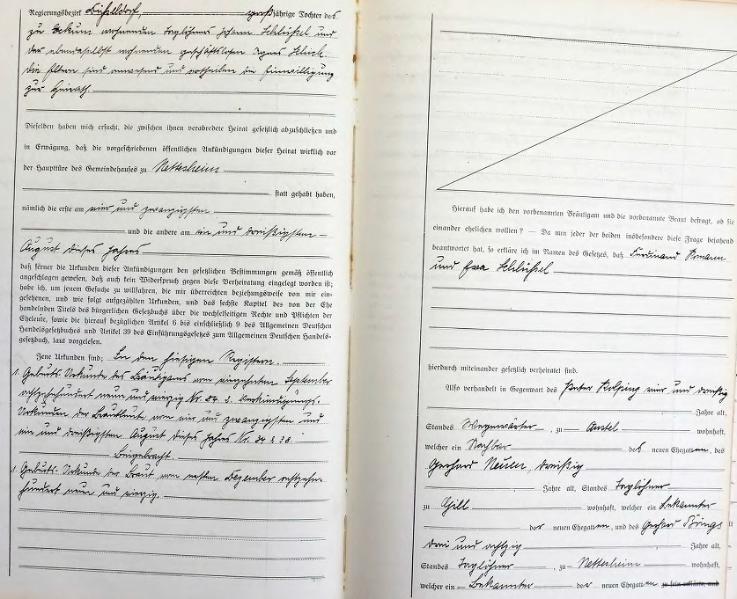 Regierungsbezirk Düsseldorf, großjährige Tochter des
zu wohnenden Taglöhners Johann Schlüssel und
der ebendaselbst wohnenden geschäftslosen Agnes
die Eltern sind anwesend und ertheilen die Einwilligung
zur Heirath.
Dieselben haben mich ersucht, die zwischen ihnen verabredete Heirat gesetzlich abzuschließen und
in Erwägung, daß die vorgeschriebenen öffentlichen Ankündigungen dieser Heirat wirklich vor
der Hauptthüre des Gemeindehauses zu Nettesheim
statt gehabt haben,
nämlich die erste am vier und zwanzigsten
und die andere am ein und dreißigsten
August dieses Jahres
daß ferner die Urkunden dieser Ankündigungen den gesetzlichen Bestimmungen gemäß öffentlich
angeschlagen gewesen, daß auch kein Widerspruch gegen diese Verheiratung eingelegt worden ist;
habe ich, um jenem Gesuche zu willfahren, die mir überreichten beziehungsweise von mir ein-
gesehenen, und wie folgt aufgezählten Urkunden, und das sechste Kapitel des von der Ehe
handelnden Titels des bürgerlichen Gesetzbuchs über die wechselseitigen Rechte und Pflichten der
Eheleute, sowie die hierauf bezüglichen Artikel 6 bis einschließlich 9 des Allgemeinen Deutschen
Handelsgesetzbuchs und Artikel 39 des Einführungsgesetzes zum Allgemeinen Deutschen Handels-
gesetzbuch, laut vorgelesen.
Jene Urkunden sind: In den hiesigen Registern.
1. Geburts-Urkunde des Bräutigams vom September
achtzehnhundert neun und vierzig Nr. 2. Verkündigungs-
Urkunden der Brautleute vom vier und zwanzigsten und
ein und dreißigsten August dieses Jahres Nr.
Beigebracht.
1. Geburts-Urkunde der Braut vom ersten Dezember achtzehn
hundert neun und vierzig.
Hierauf habe ich den vorbenannten Bräutigam und die vorbenannte Braut befragt, ob sie
einander ehelichen wollten? — Da nun jeder der beiden insbesondere diese Frage bejahend
beantwortet hat, so erkläre ich im Namen des Gesetzes, daß Ferdinand
und Eva Schlüssel
hierdurch miteinander gesetzlich verheiratet sind.
Also verhandelt in Gegenwart des Peter vier und dreißig
Jahre alt,
Standes , zu wohnhaft,
welcher ein Nachbar der neuen Ehegatten, des
Gerhard , dreißig
Jahre alt, Standes Taglöhner
zu Gill wohnhaft, welcher ein Bekannter
der neuen Ehegatten, und des Gerhard
drei und achtzig Jahre alt,
Standes Taglöhner , zu Nettesheim wohnhaft,
welcher ein Bekannter der neuen Ehegatten